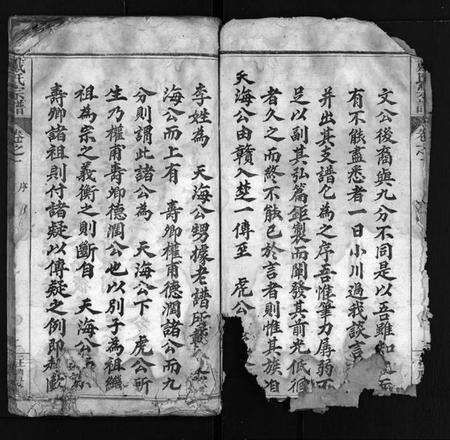 文公後裔與九分不同是以吾雖知
有不能盡悉者一日小川過我談言
并出其支譜乞為之序吾惟筆力孱弱不
足以副其弘篇鉅製而闡發其前光低徊
者久之而終不能已於言者則惟其族自
天海公由贛入楚一傳至 虎公
李姓為 天海公甥據老譜所載
海公而上有 壽卿權甫德潤諸公而九
分則謂此諸公為 天海公下 虎公所
生乃權甫壽卿德潤公也以別子為祖繼
祖為宗之義衡之則斷自 天海公為
壽卿諸祖則付諸疑以傳疑之例即
戴氏宗譜 卷之一 序